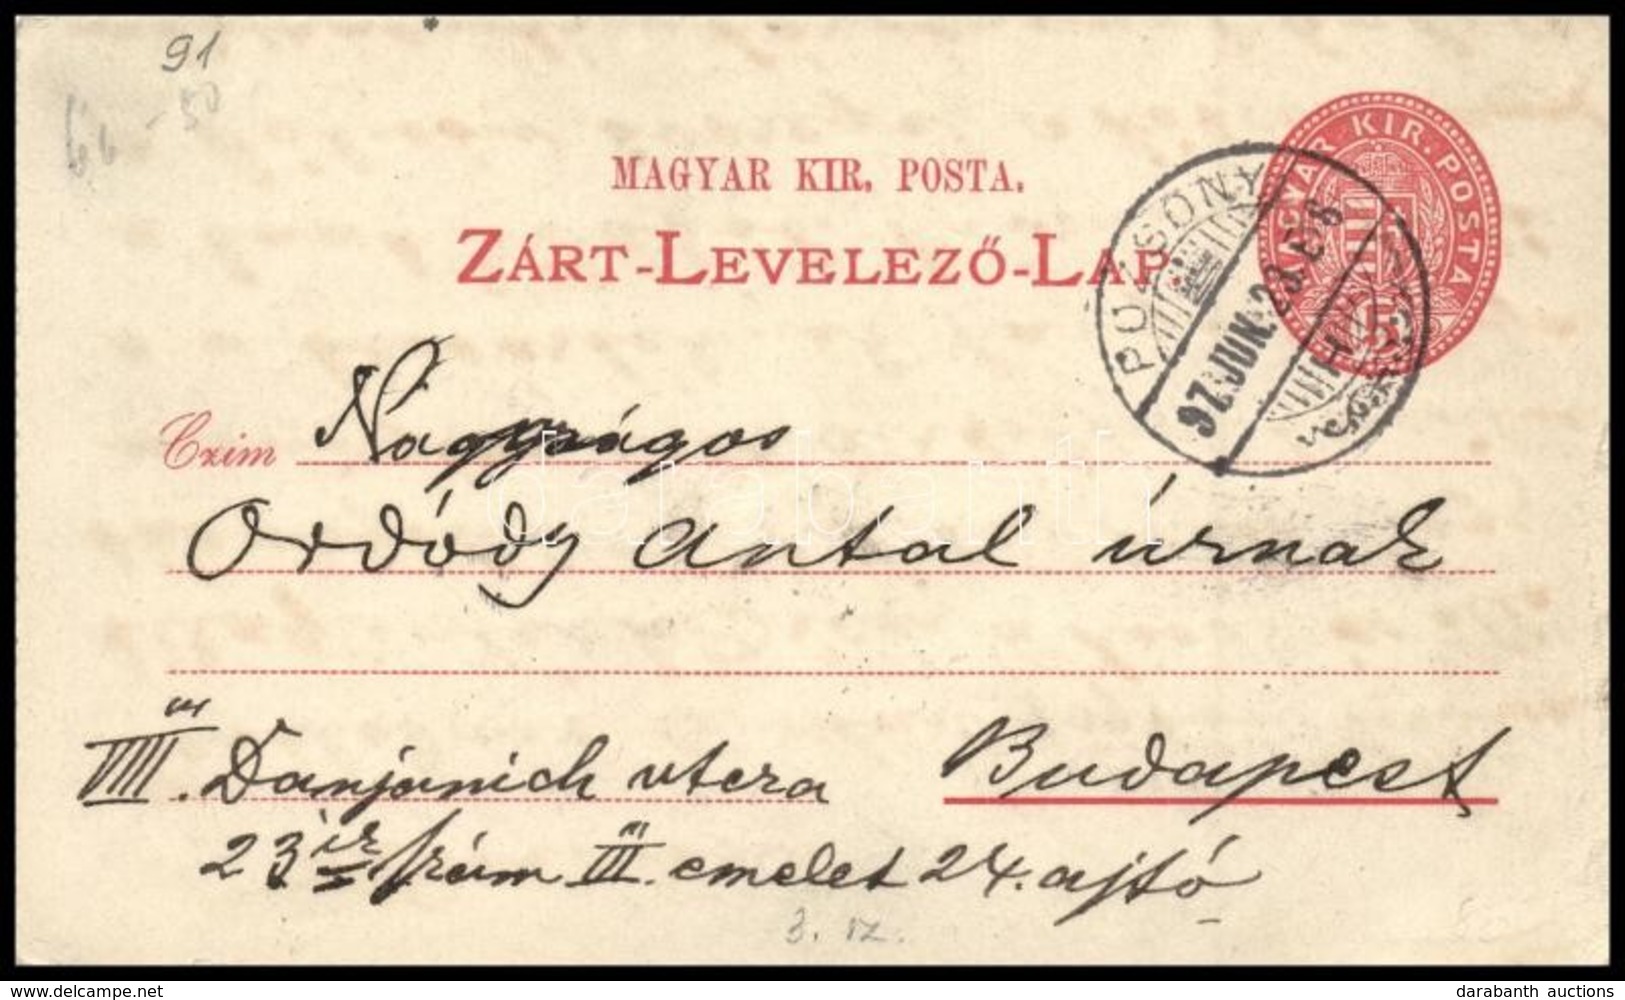 91
- 50
MAGYAR KIR. POSTA.
ZÁRT-LEVELEZŐ-LAP
MAGYAR KIR. POSTA
5
POZSONY
97 JUN. 23. E. 6
Czim Nagyságos
Ordódy Antal úrnak
VIII. Danjanich utcza Budapest
23 ik szám III. emelet 24. ajtó
3. IZ.
darabanth
www.delcampe.net
darabanth auctions